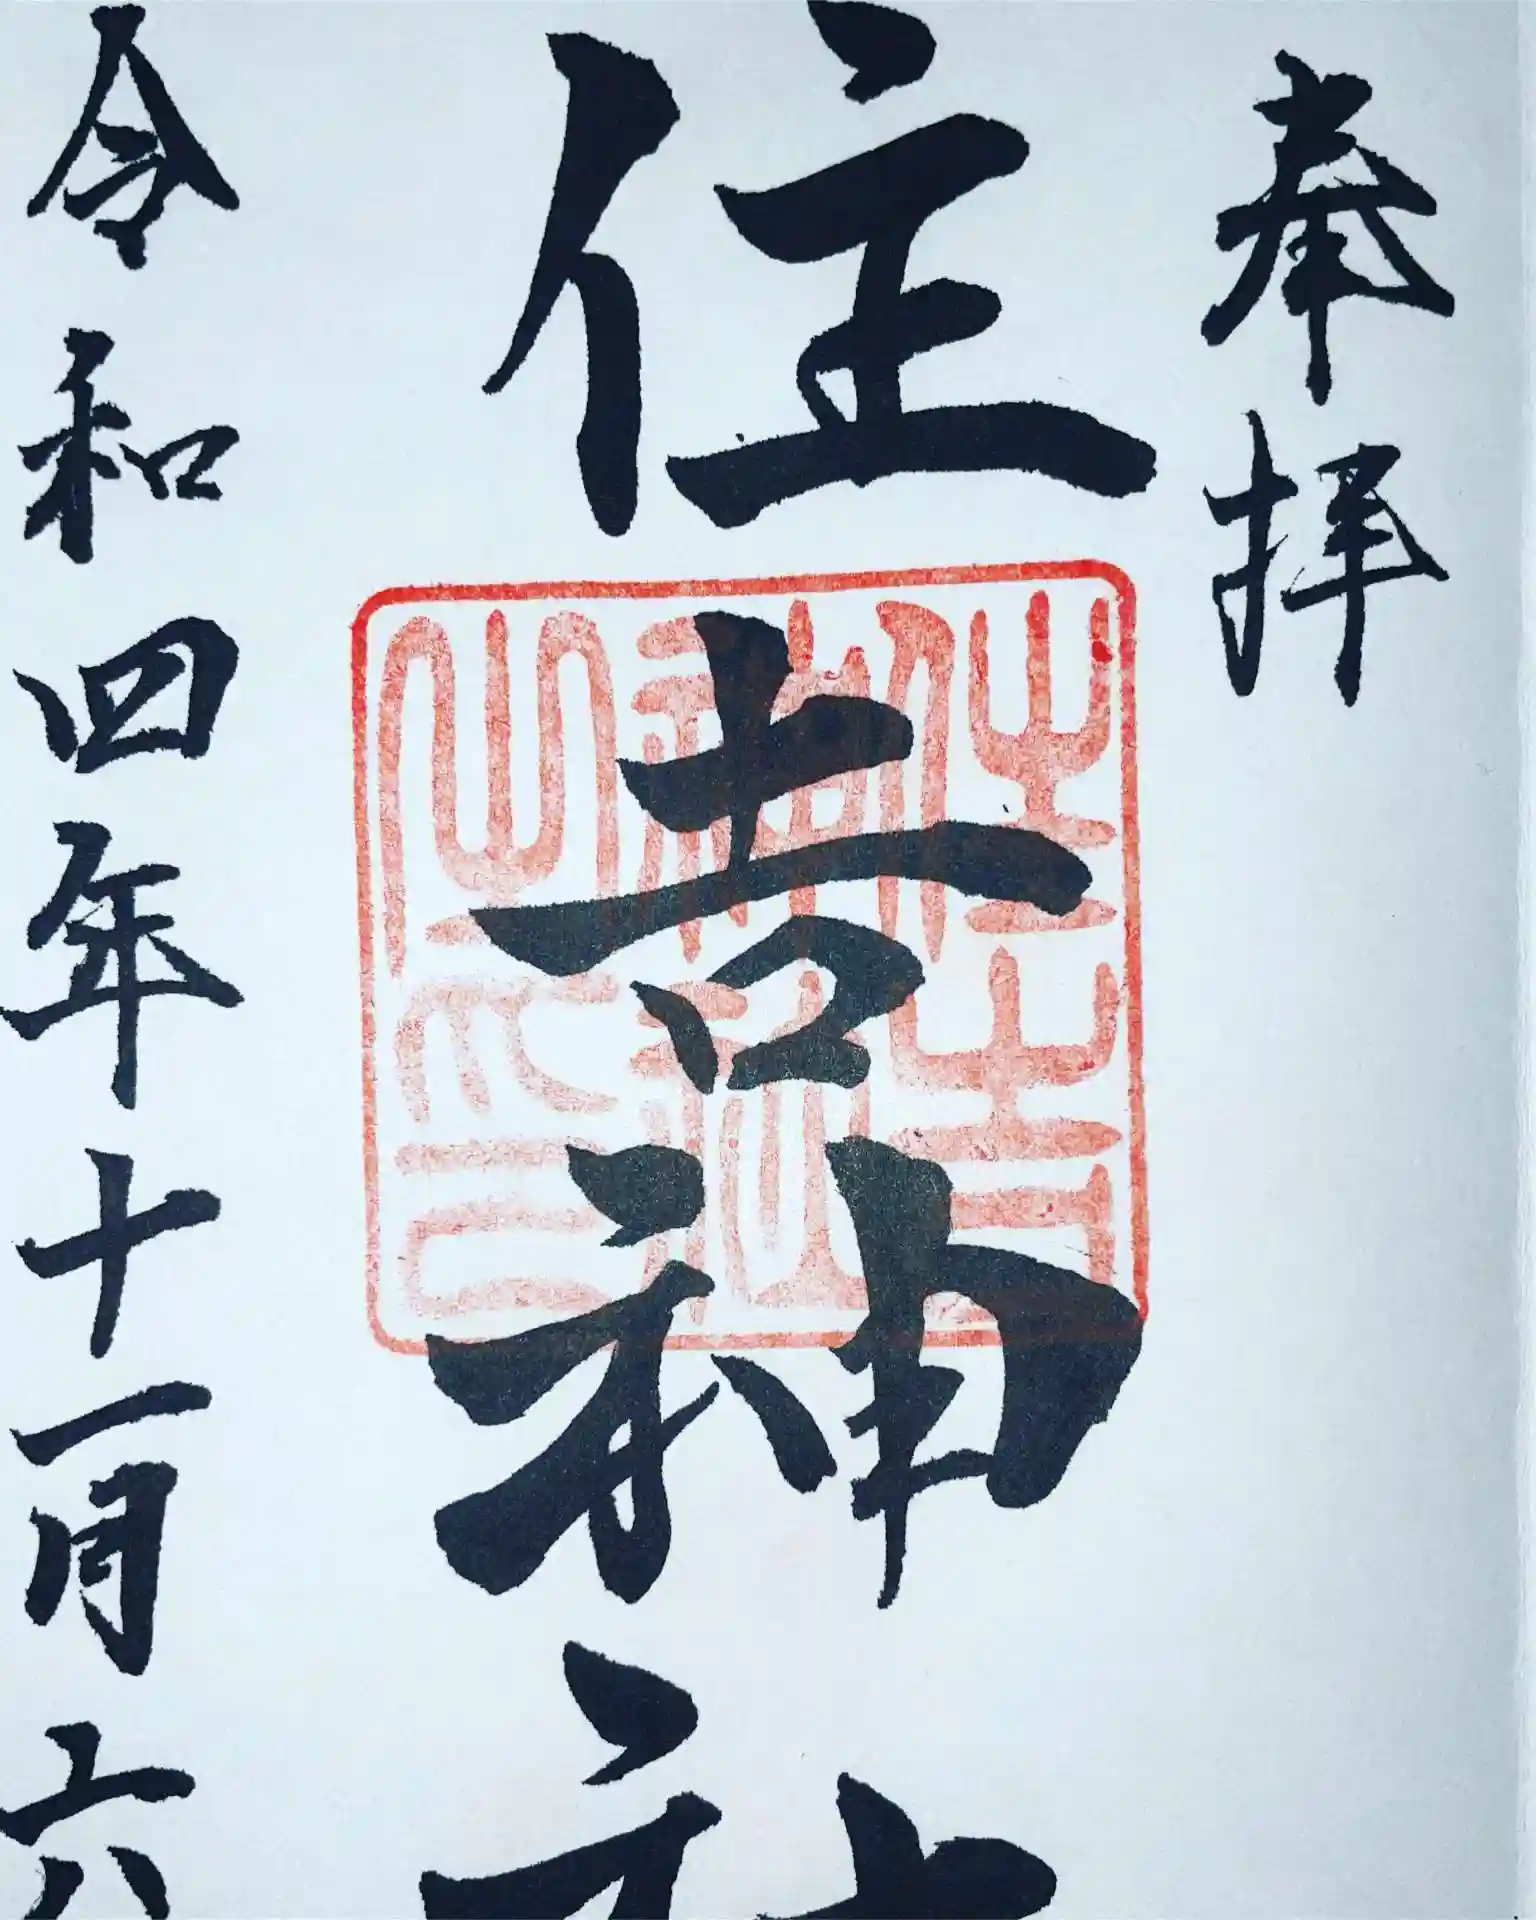 奉拝
住吉神社
住吉神社之印
令和四年十一月六